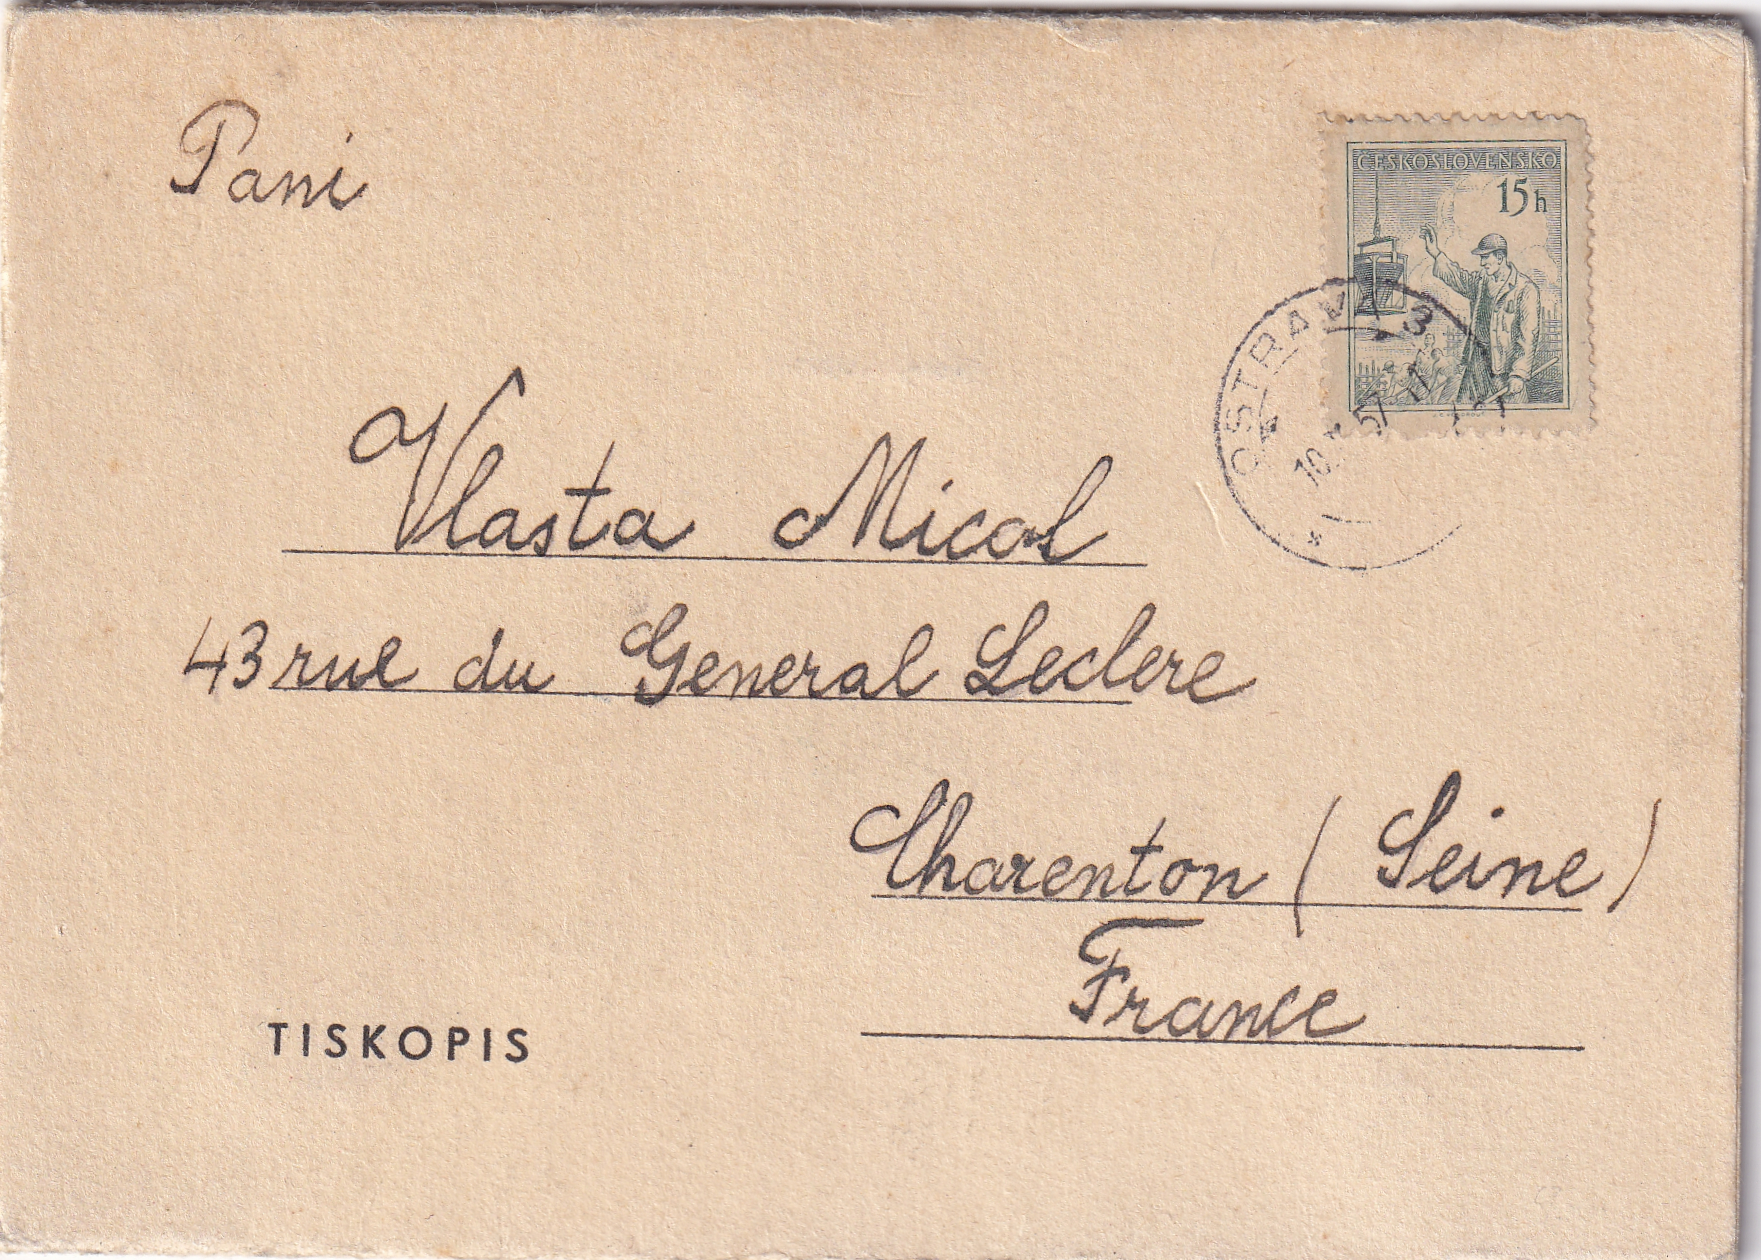 Pani
ČESKOSLOVENSKO
15h
OSTRAVA 3
10. 57
Vlasta Micol
43 rue du General Leclere
Charenton (Seine)
France
TISKOPIS